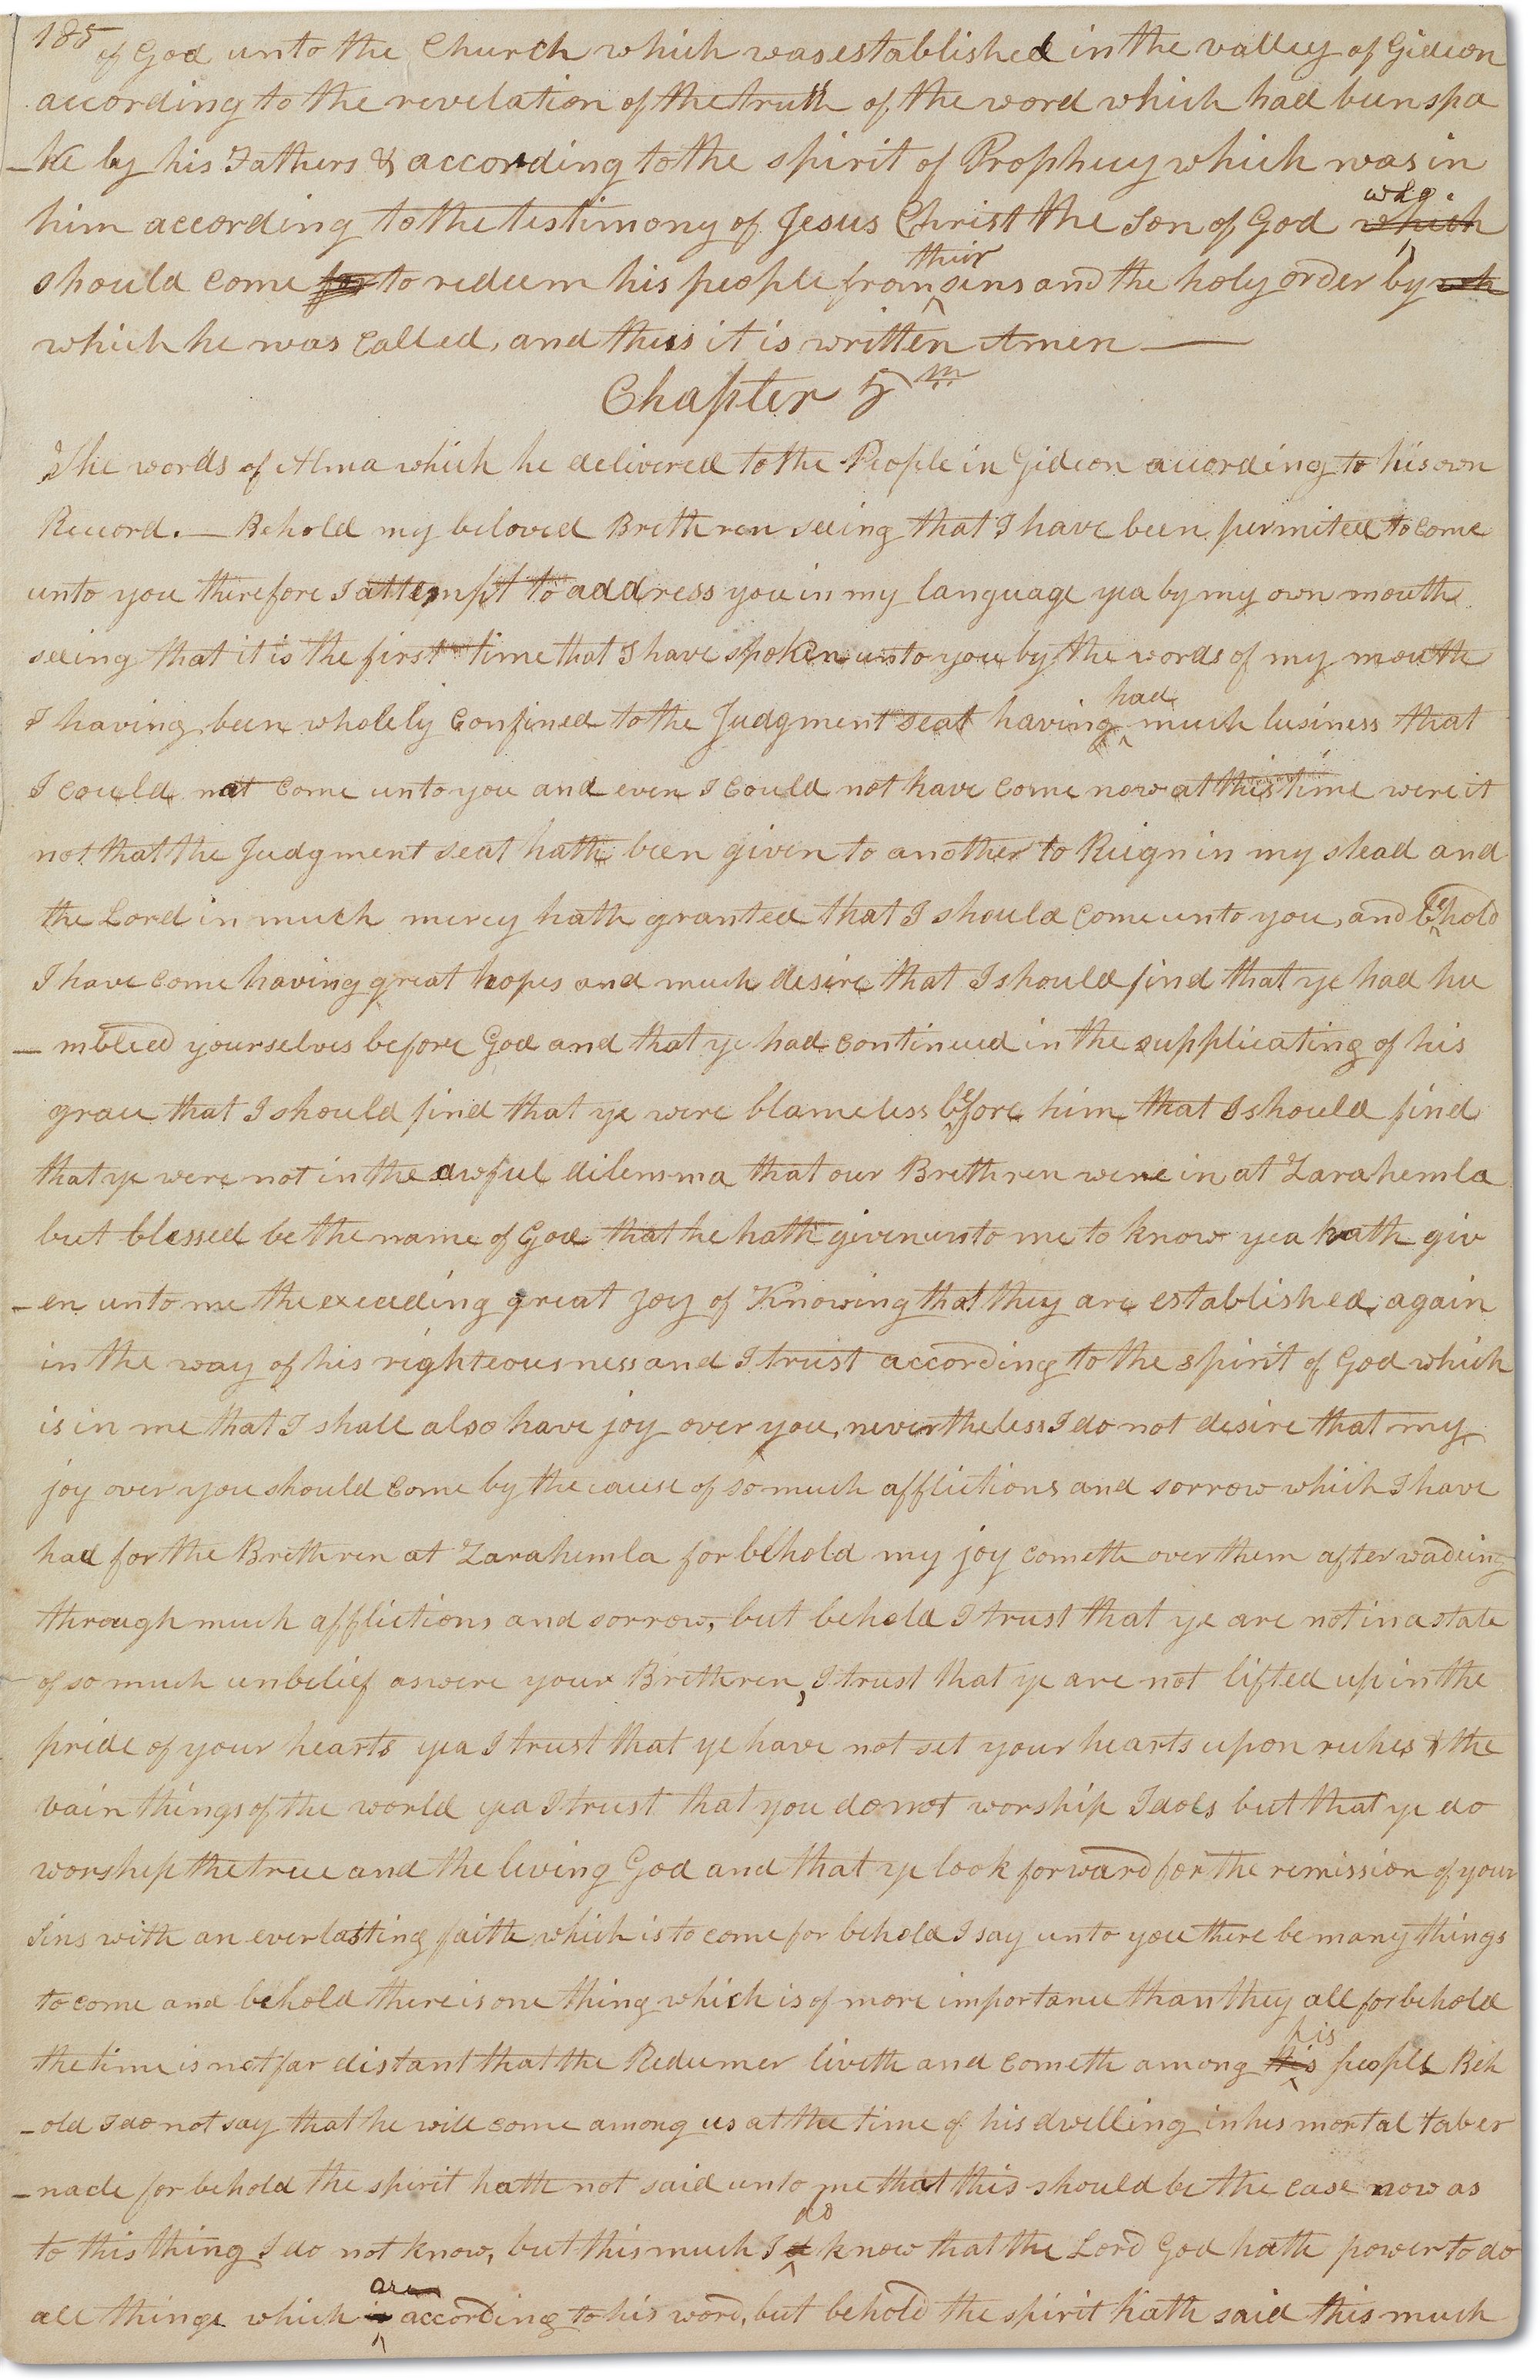 185 of God unto the Church which was established in the valley of Gideon
according to the revelation of the truth of the word which had been spo
-ke by his Fathers & according to the spirit of Prophecy which was in
him according to the testimony of Jesus Christ the Son of God which who
should come for to redeem his people from their sins and the holy order by wh
which he was called, and thus it is written Amen —
Chapter 5th
The words of Alma which he delivered to the People in Gideon according to his own
Record. — Behold my beloved Brethren seeing that I have been permited to come
unto you therefore I attempt to address you in my language yea by my own mouth
seeing that it is the first time that I have spoken unto you by the words of my mouth
I having been wholely confined to the Judgment seat having had much business that
I could not come unto you and even I could not have come now at this time were it
not that the Judgment seat hath been given to another to Reign in my stead and
the Lord in much mercy hath granted that I should come unto you, and behold
I have come having great hopes and much desire that I should find that ye had hu
— mbled yourselves before God and that ye had continued in the supplicating of his
grace that I should find that ye were blameless before him that I should find
that ye were not in the awful dilemma that our Brethren were in at Zarahemla
but blessed be the name of God that he hath given unto me to know yea hath giv
-en unto me the exceeding great joy of Knowing that they are established again
in the way of his righteousness and I trust according to the spirit of God which
is in me that I shall also have joy over you, nevertheless I do not desire that my
joy over you should come by the cause of so much afflictions and sorrow which I have
had for the Brethren at Zarahemla for behold my joy cometh over them after wadeing
through much afflictions and sorrow, but behold I trust that ye are not in a state
of so much unbelief as were your Brethren, I trust that ye are not lifted up in the
pride of your hearts yea I trust that ye have not set your hearts upon riches & the
vain things of the world yea I trust that you do not worship Idols but that ye do
worship the true and the living God and that ye look forward for the remission of your
Sins with an everlasting faith which is to come for behold I say unto you there be many things
to come and behold there is one thing which is of more importance than they all for behold
the time is not far distant that the Redeemer liveth and cometh among his people Beh
-old I do not say that he will come among us at the time of his dwelling in his mortal taber
-nacle for behold the spirit hath not said unto me that this should be the case now as
to this thing I do not know, but this much I do know that the Lord God hath power to do
all things which is are according to his word, but behold the spirit hath said this much